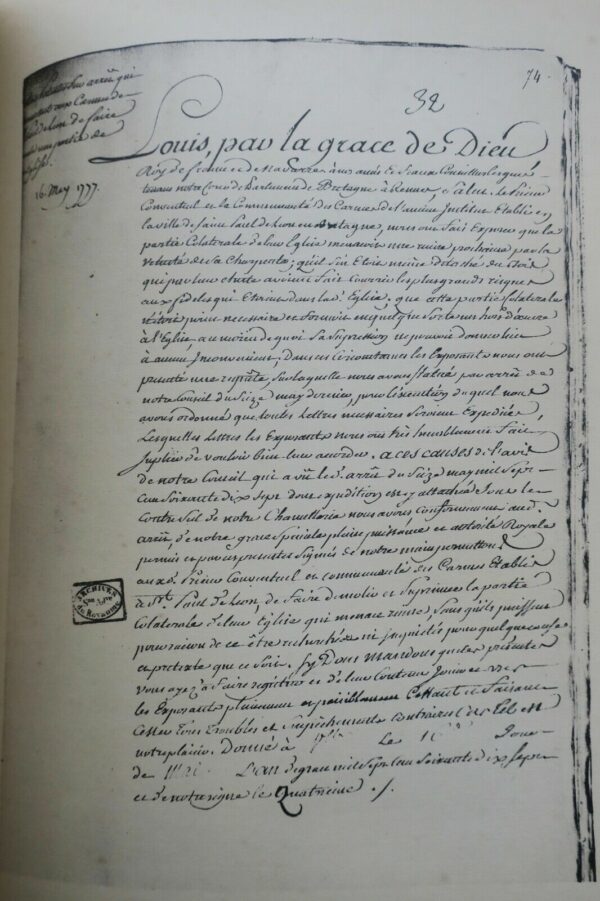 74.
32
arrêt qui
aux Carmes de
de Leon de faire
partie de
16. May 1777.
Louis, par la grace de Dieu
Roy de france et de Navarre à nos amés Et feaux Conseillers les gens
tenans notre Cour de Parlement de Bretagne à Rennes, salut. Le Prieur
Conventuel et la Communauté des Carmes de l'ancien Institut Etablis en
la ville de Saint Paul de Leon en Bretagne, nous ont fait Exposer que la
partie Colaterale de leur Eglise menacoit une ruine prochaine par la
vetusté de sa Charpente; qu'il s'en Etois même détaché du bois
qui par leur chute avoient fait Courrir les plus grands risques
aux fideles qui Etoient dans lad. Eglise. que cette partie Colaterale
n'étoit point necessaire et formoit en quelque sorte un hors d'œuvre
à l'Eglise au moyen de quoi sa Supression ne pouvoit donner lieu
à aucun Inconvenient; Dans ces Circonstances les Exposants nous ont
presenté une requête sur laquelle nous avons Statué par arrêt de
notre Conseil du Seize may dernier, pour l'execution duquel nous
avons ordonné que toutes Lettres necessaires Seroient Expediées,
Lesquelles Lettres les Exposants nous ont très humblement fait
Suplier de vouloir bien leur accorder. a ces causes de l'avis
de notre Conseil qui a vû led. arrêt du Seize may mil Sept
Cent Soixante dix Sept dont expedition est cy attachée Sous le
Contre Scel de notre Chancellerie nous avons Conformement aud.
arrêt, de notre grace Speciale pleine puissance et autorité Royale
permis et par ces presentes Signées de notre main permettons
auxd. Prieur Conventuel et communauté des Carmes Etablis
à St. Paul de Leon, de faire demolir et Suprimer la partie
Colaterale de leur Eglise qui menace ruine, Sans qu'ils puissent
pour raison de ce être recherchés ni inquietés pour quelque cause
et pretexte que ce Soit. Sy Vous Mandons que ces presentes
vous ayez à faire registrer et de leur Contenu Jouir et user
les Exposants pleinement et paisiblement Cessant et faisant
Cesser tous troubles et Empêchements contraires Car tel est
notre plaisir. Donné à Le Jour
de L'an de grace mil Sept Cent Soixante dix Sept
et de notre regne le Quatrieme ./.
ARCHIVES
du Royaume